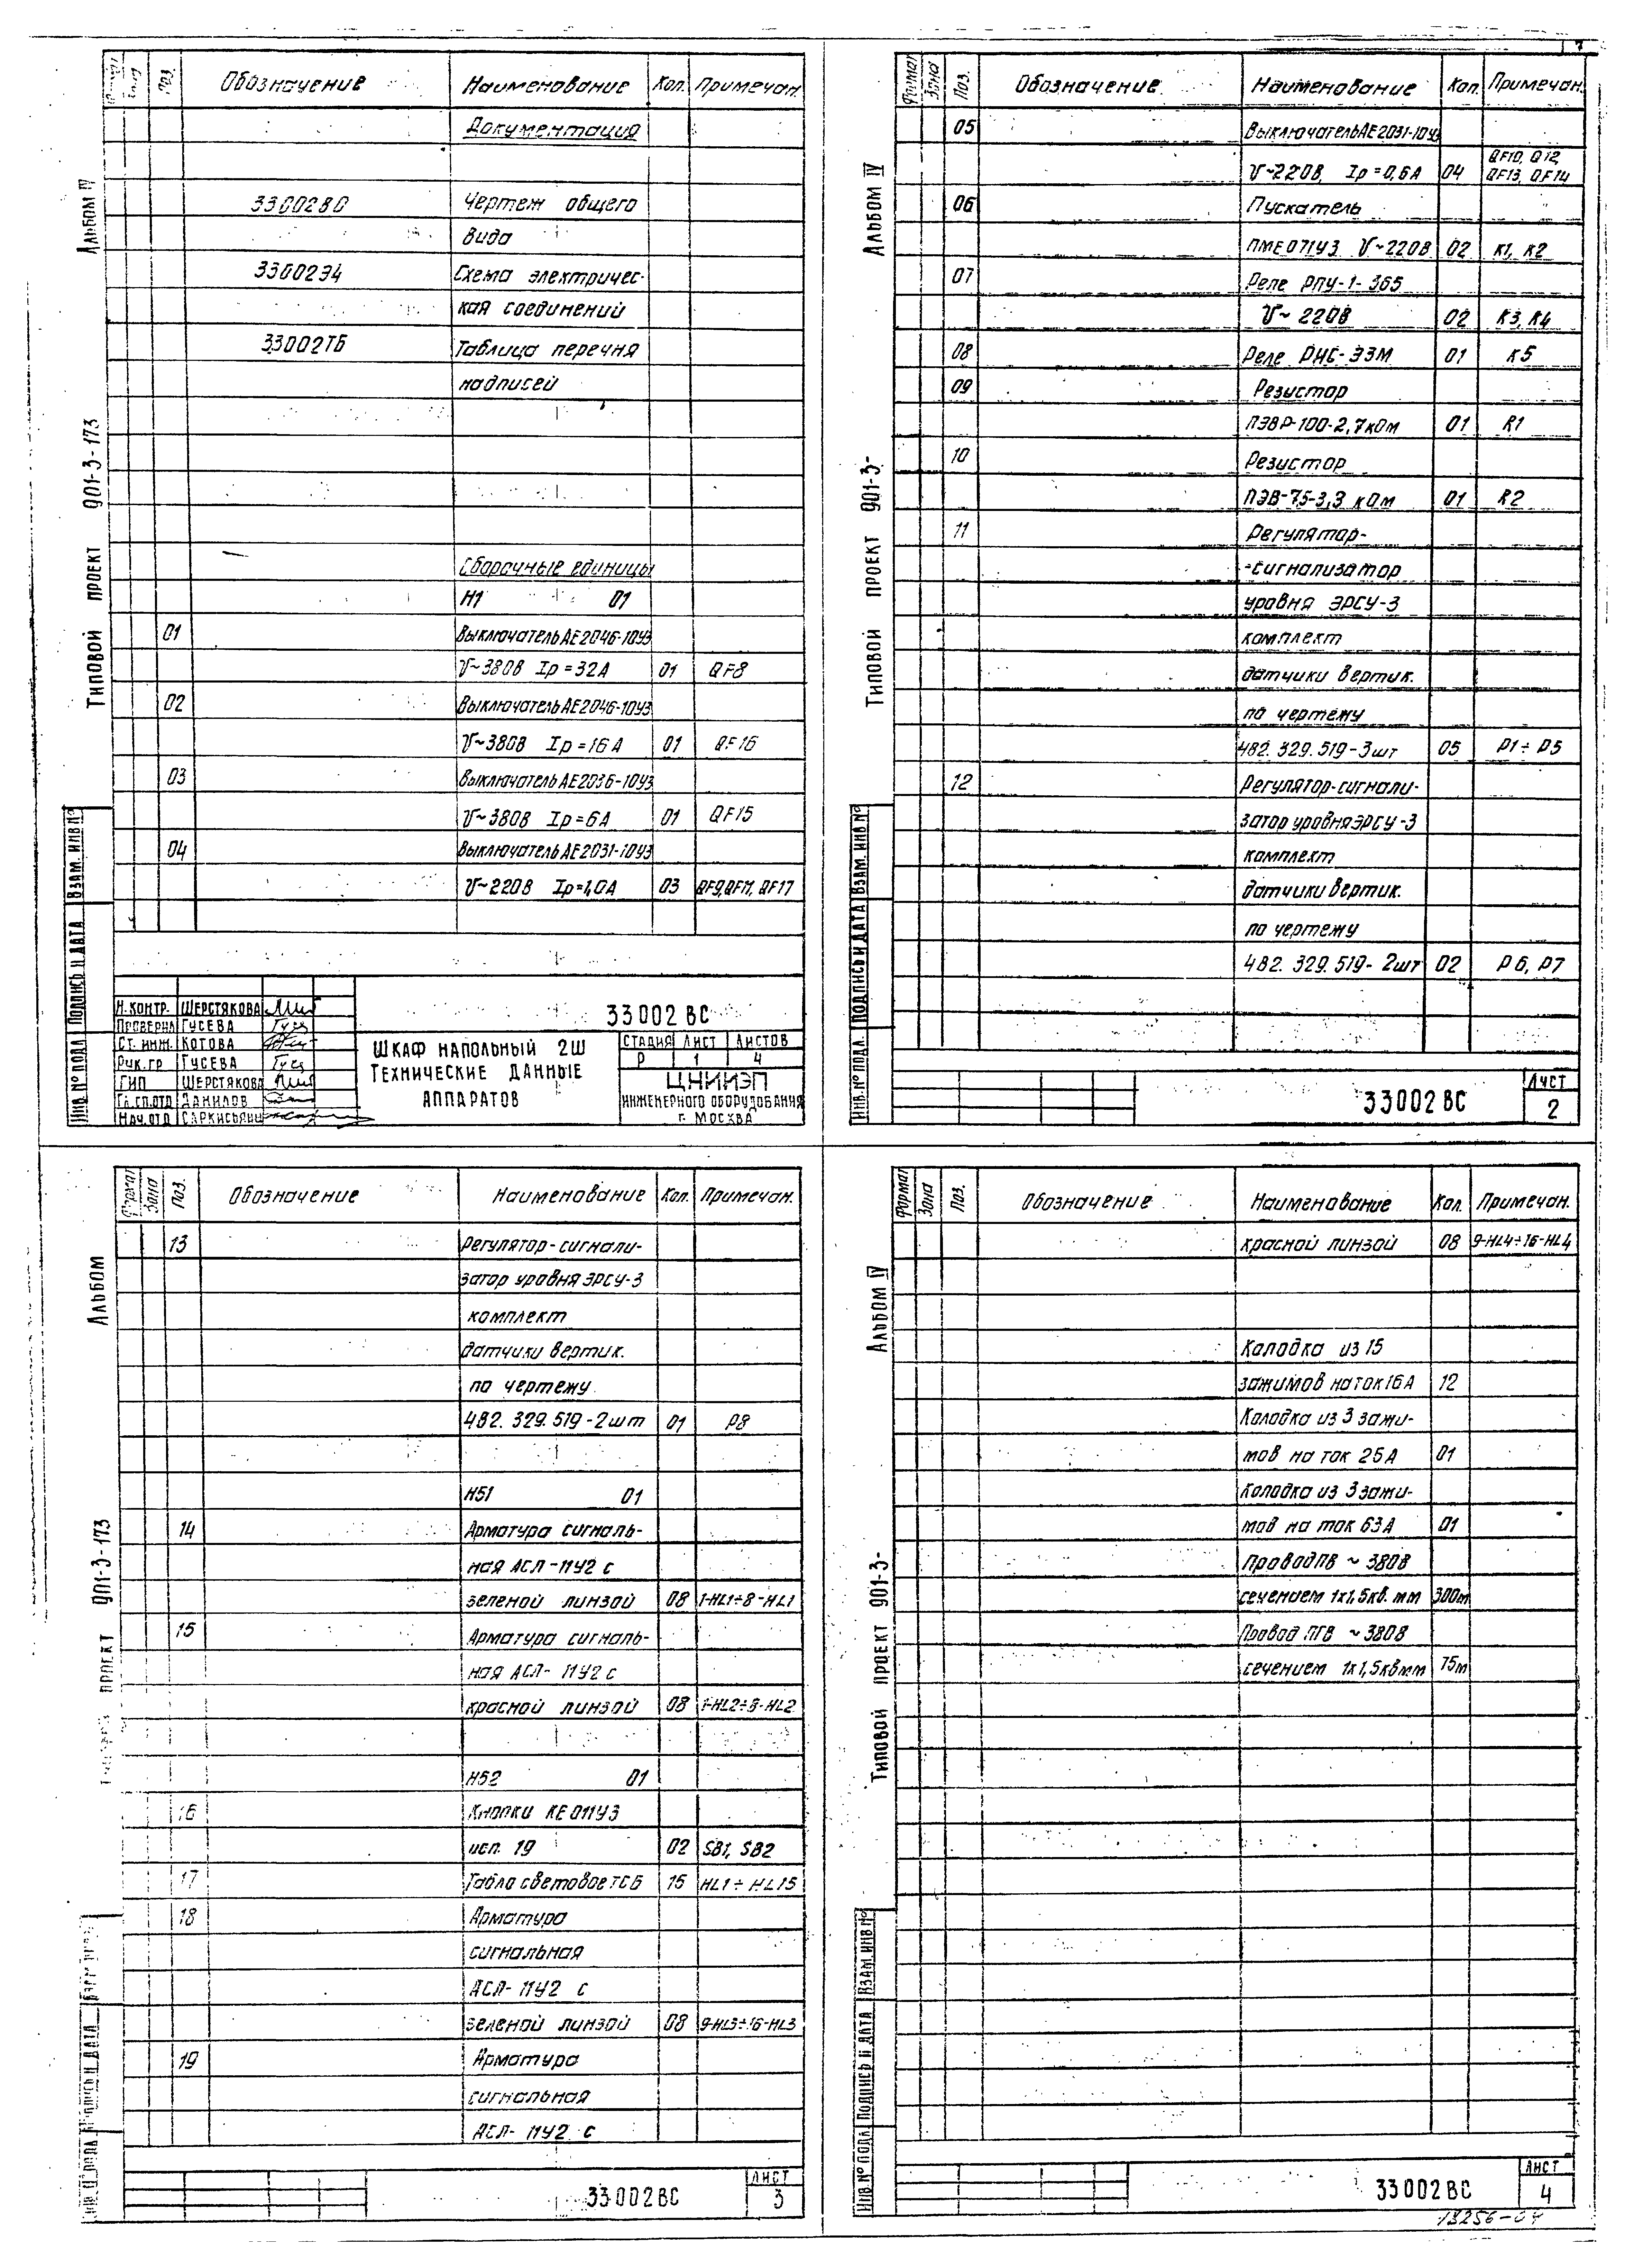 7
Альбом IV
Типовой проект 901-3-173
Поз. Обозначение Наименование Кол. Примечан.
Документация
33002ВО Чертеж общего
вида
33002Э4 Схема электричес-
кая соединений
33002ТБ Таблица перечня
надписей
Сборочные единицы
Н1 01
01 Выключатель АЕ2046-10У3
U~380В Iр=32А 01 QF8
02 Выключатель АЕ2046-10У3
U~380В Iр=16А 01 QF16
03 Выключатель АЕ2036-10У3
U~380В Iр=6А 01 QF15
04 Выключатель АЕ2031-10У3
U~220В Iр=1,0А 03 QF9, QF11, QF17
Инв.№ подл Подпись и дата Взам. инв №
Н.контр. Шерстякова
Проверил Гусева
Ст. инж. Котова
Рук. гр Гусева
ГИП Шерстякова
Гл.сп.отд Данилов
Нач.отд Саркисьянц
33002 ВС
Шкаф напольный 2Ш
Технические данные
аппаратов
Стадия Лист Листов
Р 1 4
ЦНИИЭП
инженерного оборудования
г. Москва
Альбом IV
Типовой проект 901-3-
Формат Зона Поз. Обозначение Наименование Кол. Примечан.
05 Выключатель АЕ2031-10У3
U~220В, Iр=0,6А 04 QF10, Q12, QF13, QF14
06 Пускатель
ПМЕ071У3 U~220В 02 К1, К2
07 Реле РПУ-1-365
U~220В 02 К3, К4
08 Реле РНС-ЭЗМ 01 К5
09 Резистор
ПЭВР-100-2,7кОм 01 R1
10 Резистор
ПЭВ-75-3,3 кОм 01 R2
11 Регулятор-
-сигнализатор
уровня ЭРСУ-3
комплект
датчики вертик.
по чертежу
482.329.519-3шт 05 Р1÷Р5
12 Регулятор-сигнали-
затор уровня ЭРСУ-3
комплект
датчики вертик.
по чертежу
482.329.519-2шт 02 Р6, Р7
Инв.№ подл. Подпись и дата Взам. инв.№
33002ВС
Лист
2
Альбом
проект 901-3-173
Формат Зона Поз. Обозначение Наименование Кол. Примечан.
13 Регулятор-сигнали-
затор уровня ЭРСУ-3
комплект
датчики вертик.
по чертежу
482.329.519-2шт 01 Р8
Н51 01
14 Арматура сигналь-
ная АСЛ-11У2 с
зеленой линзой 08 1-HL1÷8-HL1
15 Арматура сигналь-
ная АСЛ-11У2 с
красной линзой 08 1-HL2÷8-HL2
Н52 01
16 Кнопки КЕ011У3
исп. 19 02 SB1, SB2
17 Табло световое ТСБ 15 HL1÷HL15
18 Арматура
сигнальная
АСЛ-11У2 с
зеленой линзой 08 9-HL3÷16-HL3
19 Арматура
сигнальная
АСЛ-11У2 с
33002ВС
Лист
3
Альбом IV
Типовой проект 901-3-
Формат Зона Поз. Обозначение Наименование Кол. Примечан.
красной линзой 08 9-HL4÷16-HL4
Колодка из 15
зажимов на ток 16А 12
Колодка из 3 зажи-
мов на ток 25А 01
Колодка из 3 зажи-
мов на ток 63А 01
Провод ПВ ~380В
сечением 1х1,5кв.мм 300м
Провод ПГВ ~380В
сечением 1х1,5квмм 75м
Инв.№ подл. Подпись и дата Взам.инв.№
33002ВС
Лист
4
18256-04